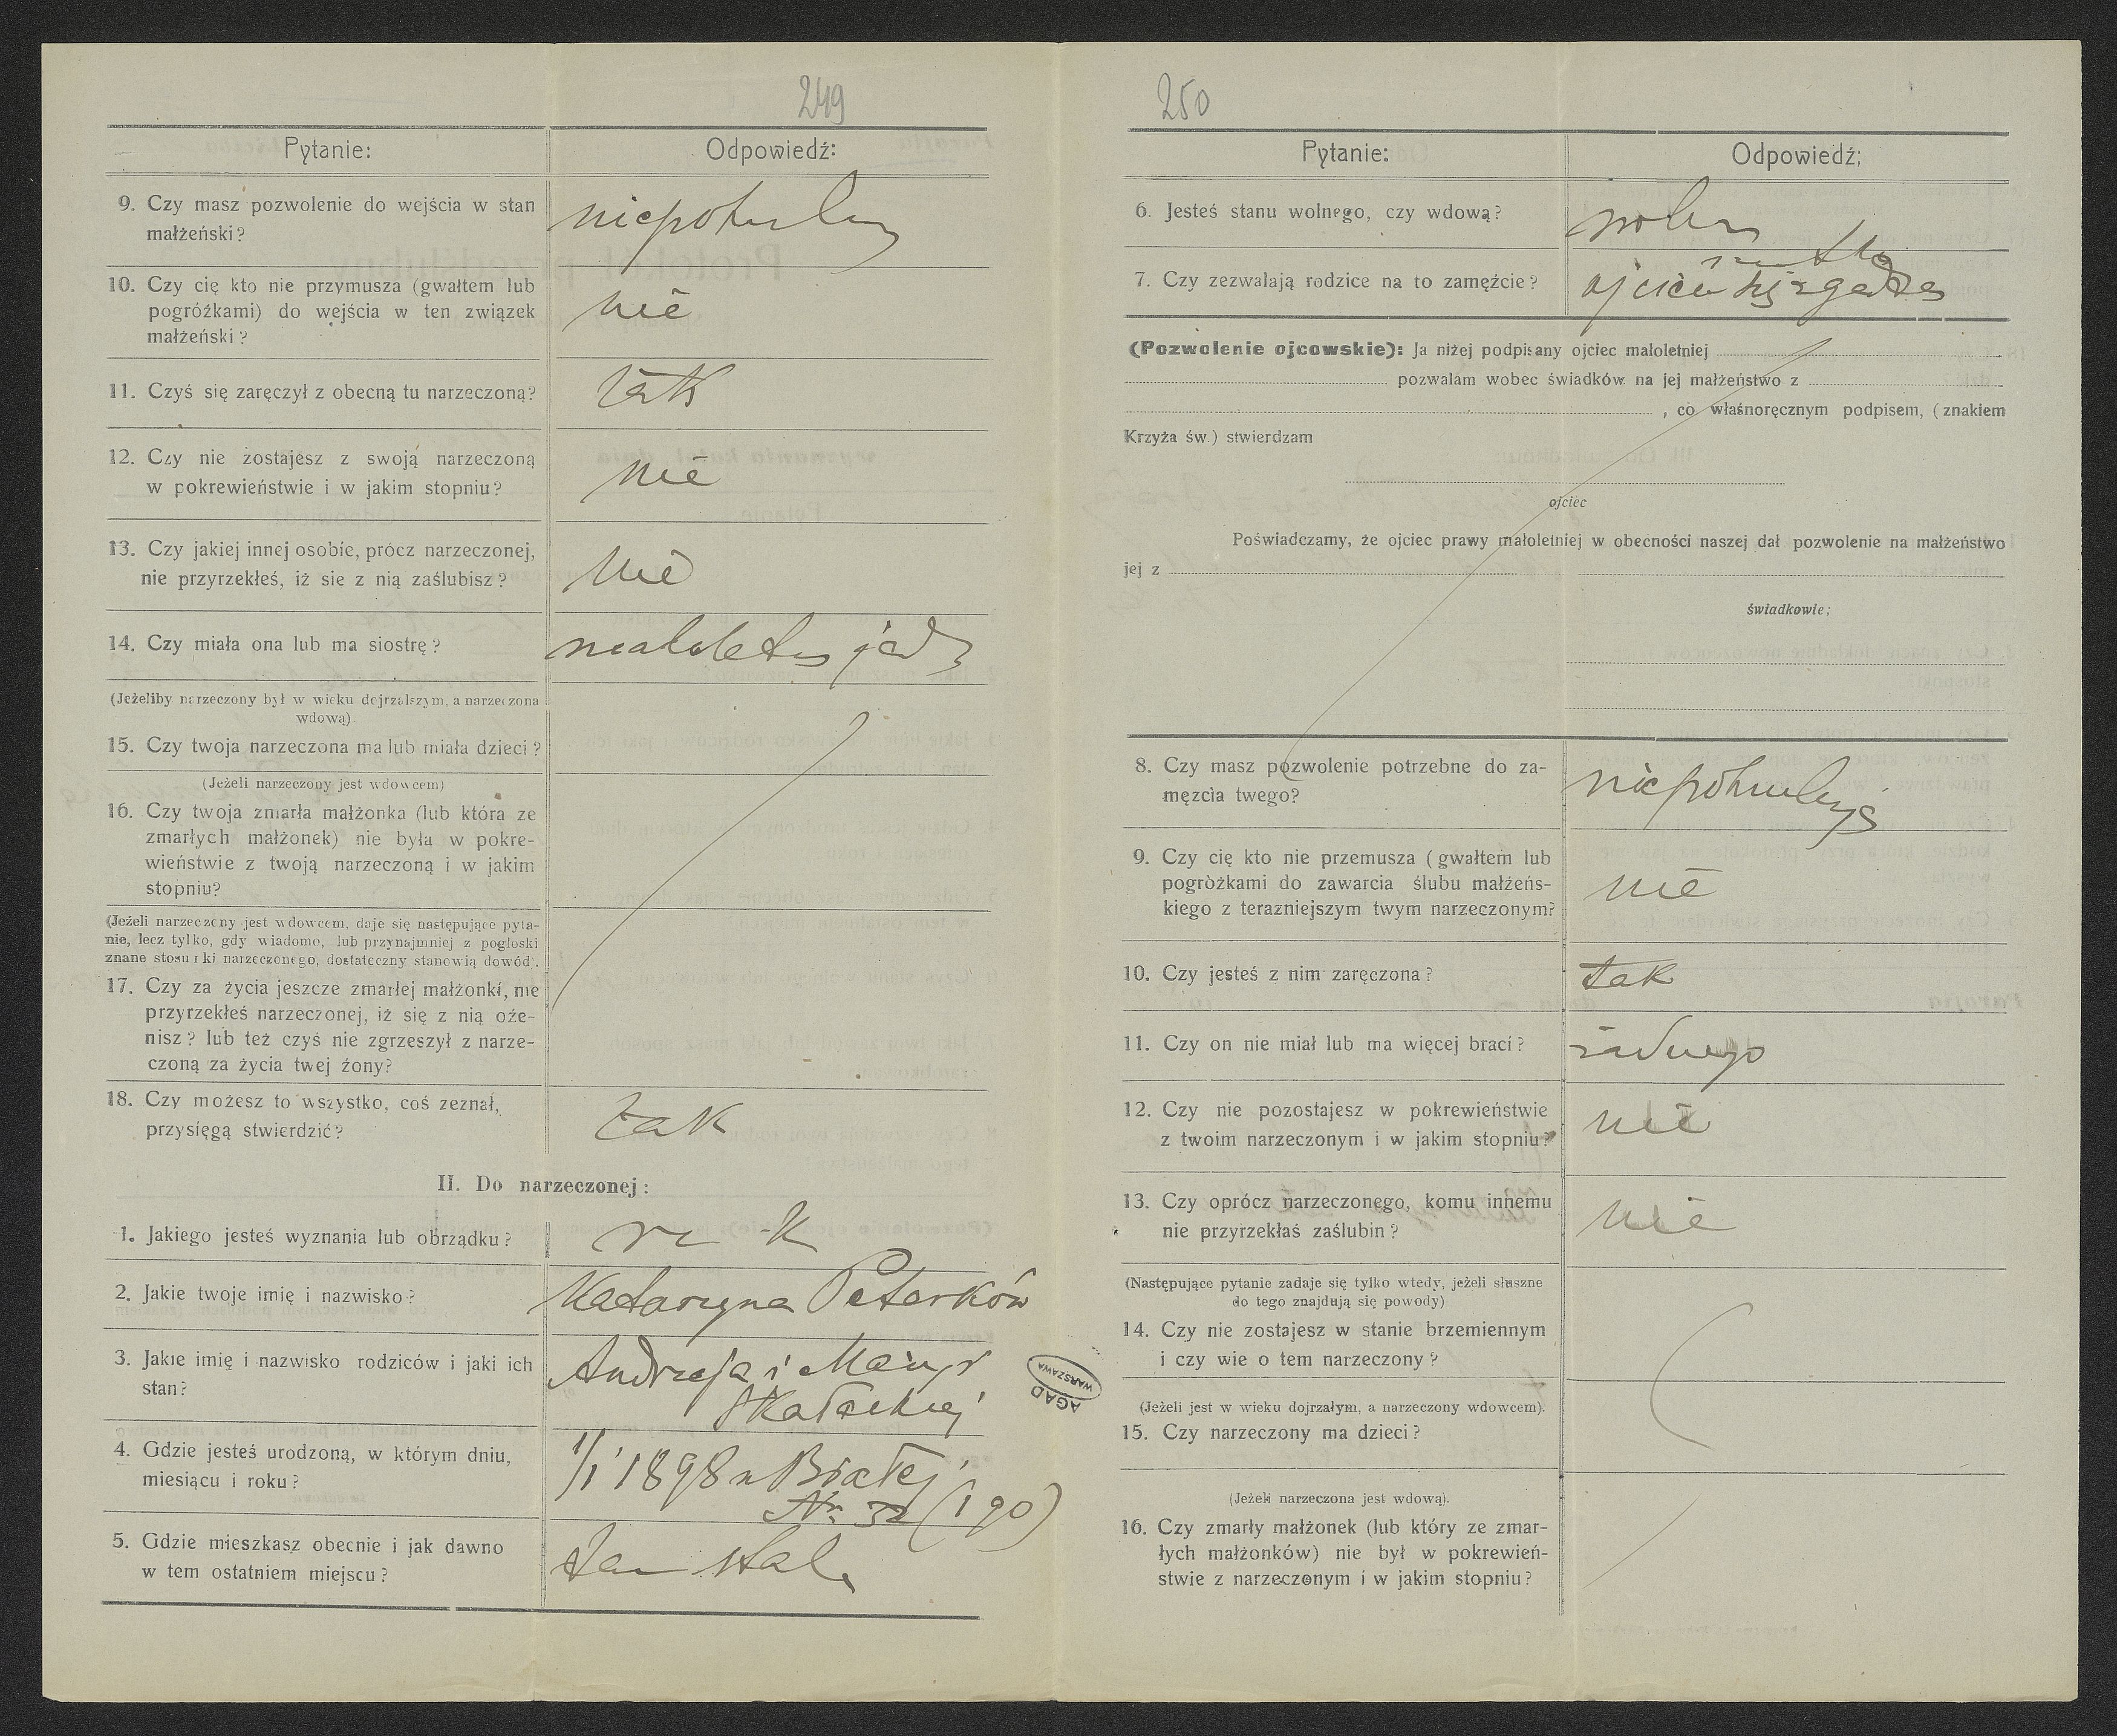 249
Pytanie:
Odpowiedź:
9. Czy masz pozwolenie do wejścia w stan
małżeński?
niepotrzebny
10. Czy cię kto nie przymusza (gwałtem lub
pogróźkami) do wejścia w ten związek
małżeński?
nie
11. Czyś się zaręczył z obecną tu narzeczoną?
tak
12. Czy nie zostajesz z swoją narzeczoną
w pokrewieństwie i w jakim stopniu?
nie
13. Czy jakiej innej osobie, prócz narzeczonej,
nie przyrzekłeś, iż sie z nią zaślubisz?
nie
14. Czy miała ona lub ma siostrę?
(Jeżeliby narzeczony był w wieku dojrzalszym, a narzeczona
wdową)
15. Czy twoja narzeczona ma lub miała dzieci?
(Jeżeli narzeczony jest wdowcem)
16. Czy twoja zmarła małżonka (lub która ze
zmarłych małżonek) nie była w pokre-
wieństwie z twoją narzeczoną i w jakim
stopniu?
(Jeżeli narzeczony jest wdowcem, daje się następujące pyta-
nie, lecz tylko, gdy wiadome, lub przynajmniej z pogłoski
znane stosunki narzeczonego, dostateczny stanowią dowód).
17. Czy za życia jeszcze zmarłej małżonki, nie
przyrzekłeś narzeczonej, iż się z nią oże-
nisz? lub też czyś nie zgrzeszył z narze-
czoną za życia twej żony?
18. Czy możesz to wszystko, coś zeznał,
przysięgą stwierdzić?
tak
II. Do narzeczonej:
1. Jakiego jesteś wyznania lub obrządku?
rz-k
2. Jakie twoje imię i nazwisko?
Katarzyna Peterków
3. Jakie imię i nazwisko rodziców i jaki ich
stan?
Andrzeja i Maryi
Skałeckiej
4. Gdzie jesteś urodzoną, w którym dniu,
miesiącu i roku?
1/1 1898 w Białej
Nr. 32 (190)
5. Gdzie mieszkasz obecnie i jak dawno
w tem ostatniem miejscu?
Tam stale
AGAD
WARSZAWA
250
Pytanie:
Odpowiedź;
6. Jesteś stanu wolnego, czy wdową?
wolny
7. Czy zezwalają rodzice na to zamęźcie?
ojciec
(Pozwolenie ojcowskie): Ja niżej podpisany ojciec małoletniej
pozwalam wobec świadków na jej małżeństwo z
, co własnoręcznym podpisem, (znakiem
Krzyża św.) stwierdzam
ojciec
Poświadczamy, że ojciec prawy małoletniej w obecności naszej dał pozwolenie na małżeństwo
jej z
świadkowie;
8. Czy masz pozwolenie potrzebne do za-
męzcia twego?
9. Czy cię kto nie przemusza (gwałtem lub
pogròżkami do zawarcia ślubu małżeńs-
kiego z terazniejszym twym narzeczonym?
nie
10. Czy jesteś z nim zaręczona?
tak
11. Czy on nie miał lub ma więcej braci?
żadnego
12. Czy nie pozostajesz w pokrewieństwie
z twoim narzeczonym i w jakim stopniu?
nie
13. Czy oprócz narzeczonego, komu innemu
nie przyrzekłaś zaślubin?
nie
(Następujące pytanie zadaje się tylko wtedy, jeżeli słuszne
do tego znajdują się powody)
14. Czy nie zostajesz w stanie brzemiennym
i czy wie o tem narzeczony?
(Jeżeli jest w wieku dojrzałym, a narzeczony wdowcem).
15. Czy narzeczony ma dzieci?
(Jeżeli narzeczona jest wdową).
16. Czy zmarły małżonek (lub który ze zmar-
łych małżonków) nie był w pokrewień-
stwie z narzeczonym i w jakim stopniu?